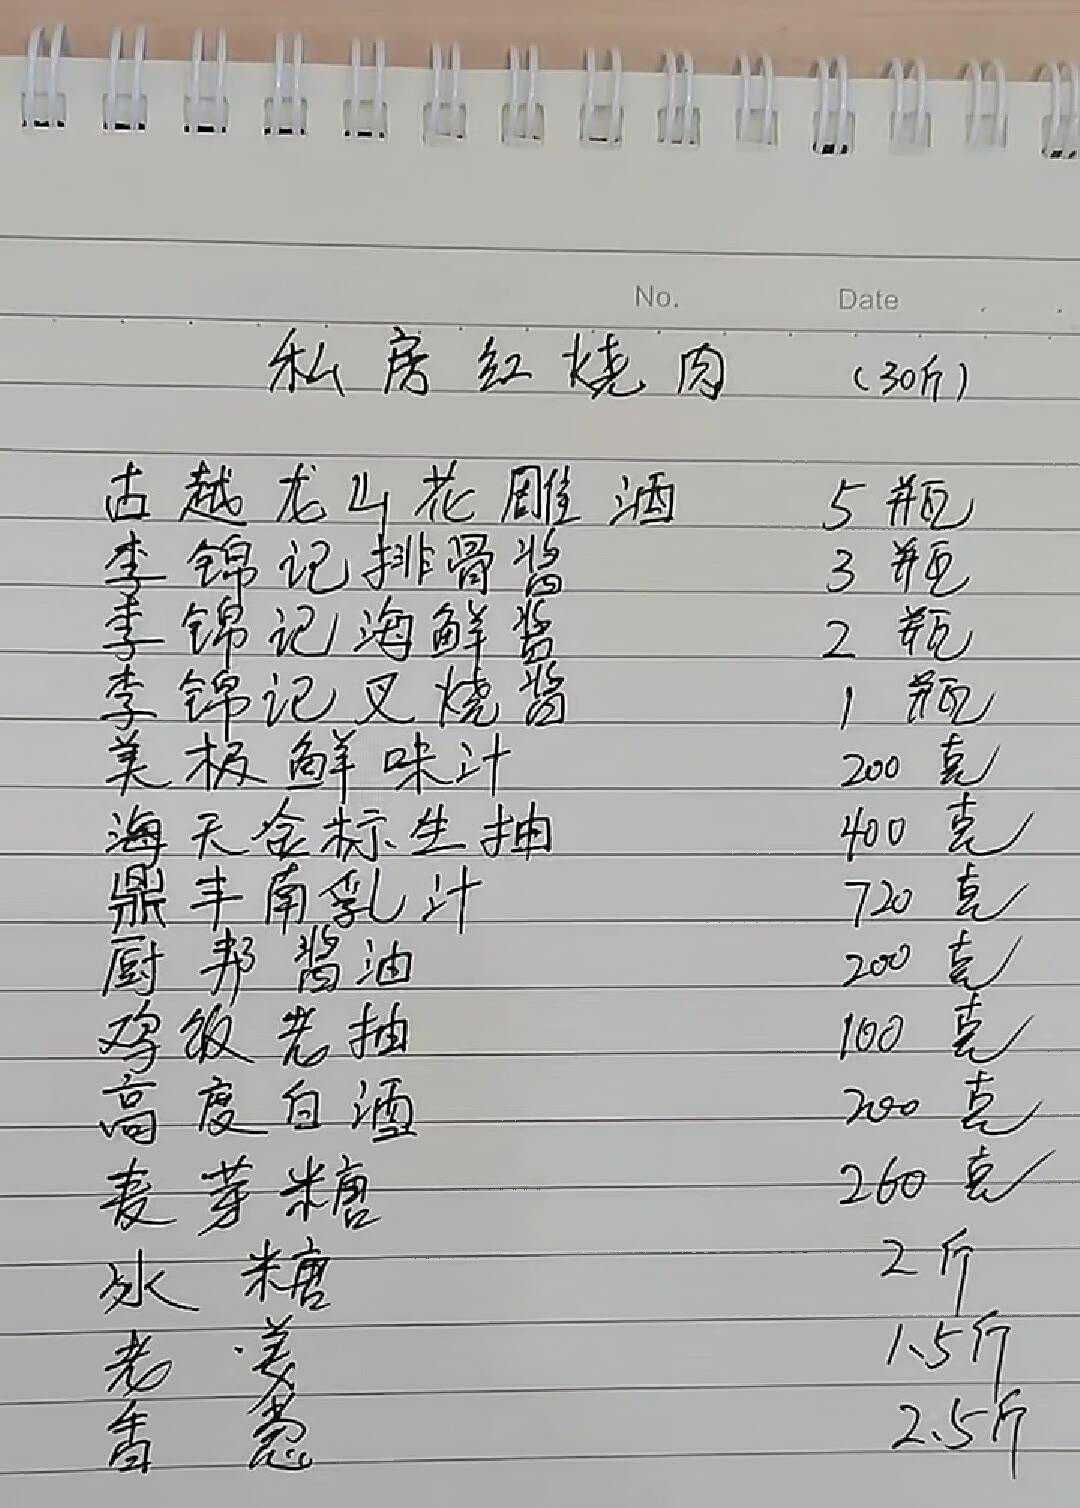 No. Date
私房红烧肉 (30斤)
古越龙山花雕酒 5瓶
李锦记排骨酱 3瓶
李锦记海鲜酱 2瓶
李锦记叉烧酱 1瓶
美极鲜味汁 200克
海天金标生抽 400克
鼎丰南乳汁 720克
厨邦酱油 200克
鸡饭老抽 100克
高度白酒 200克
麦芽糖 260克
冰糖 2斤
老姜 1.5斤
香葱 2.5斤